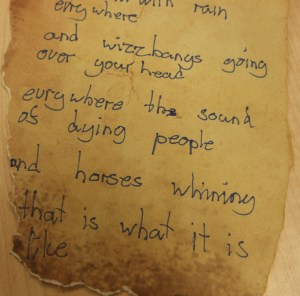 with rain
eiry where
and wizzbangs going
over your head
eurywhere the sound
of dying people
and horses whining
that is what it is
like